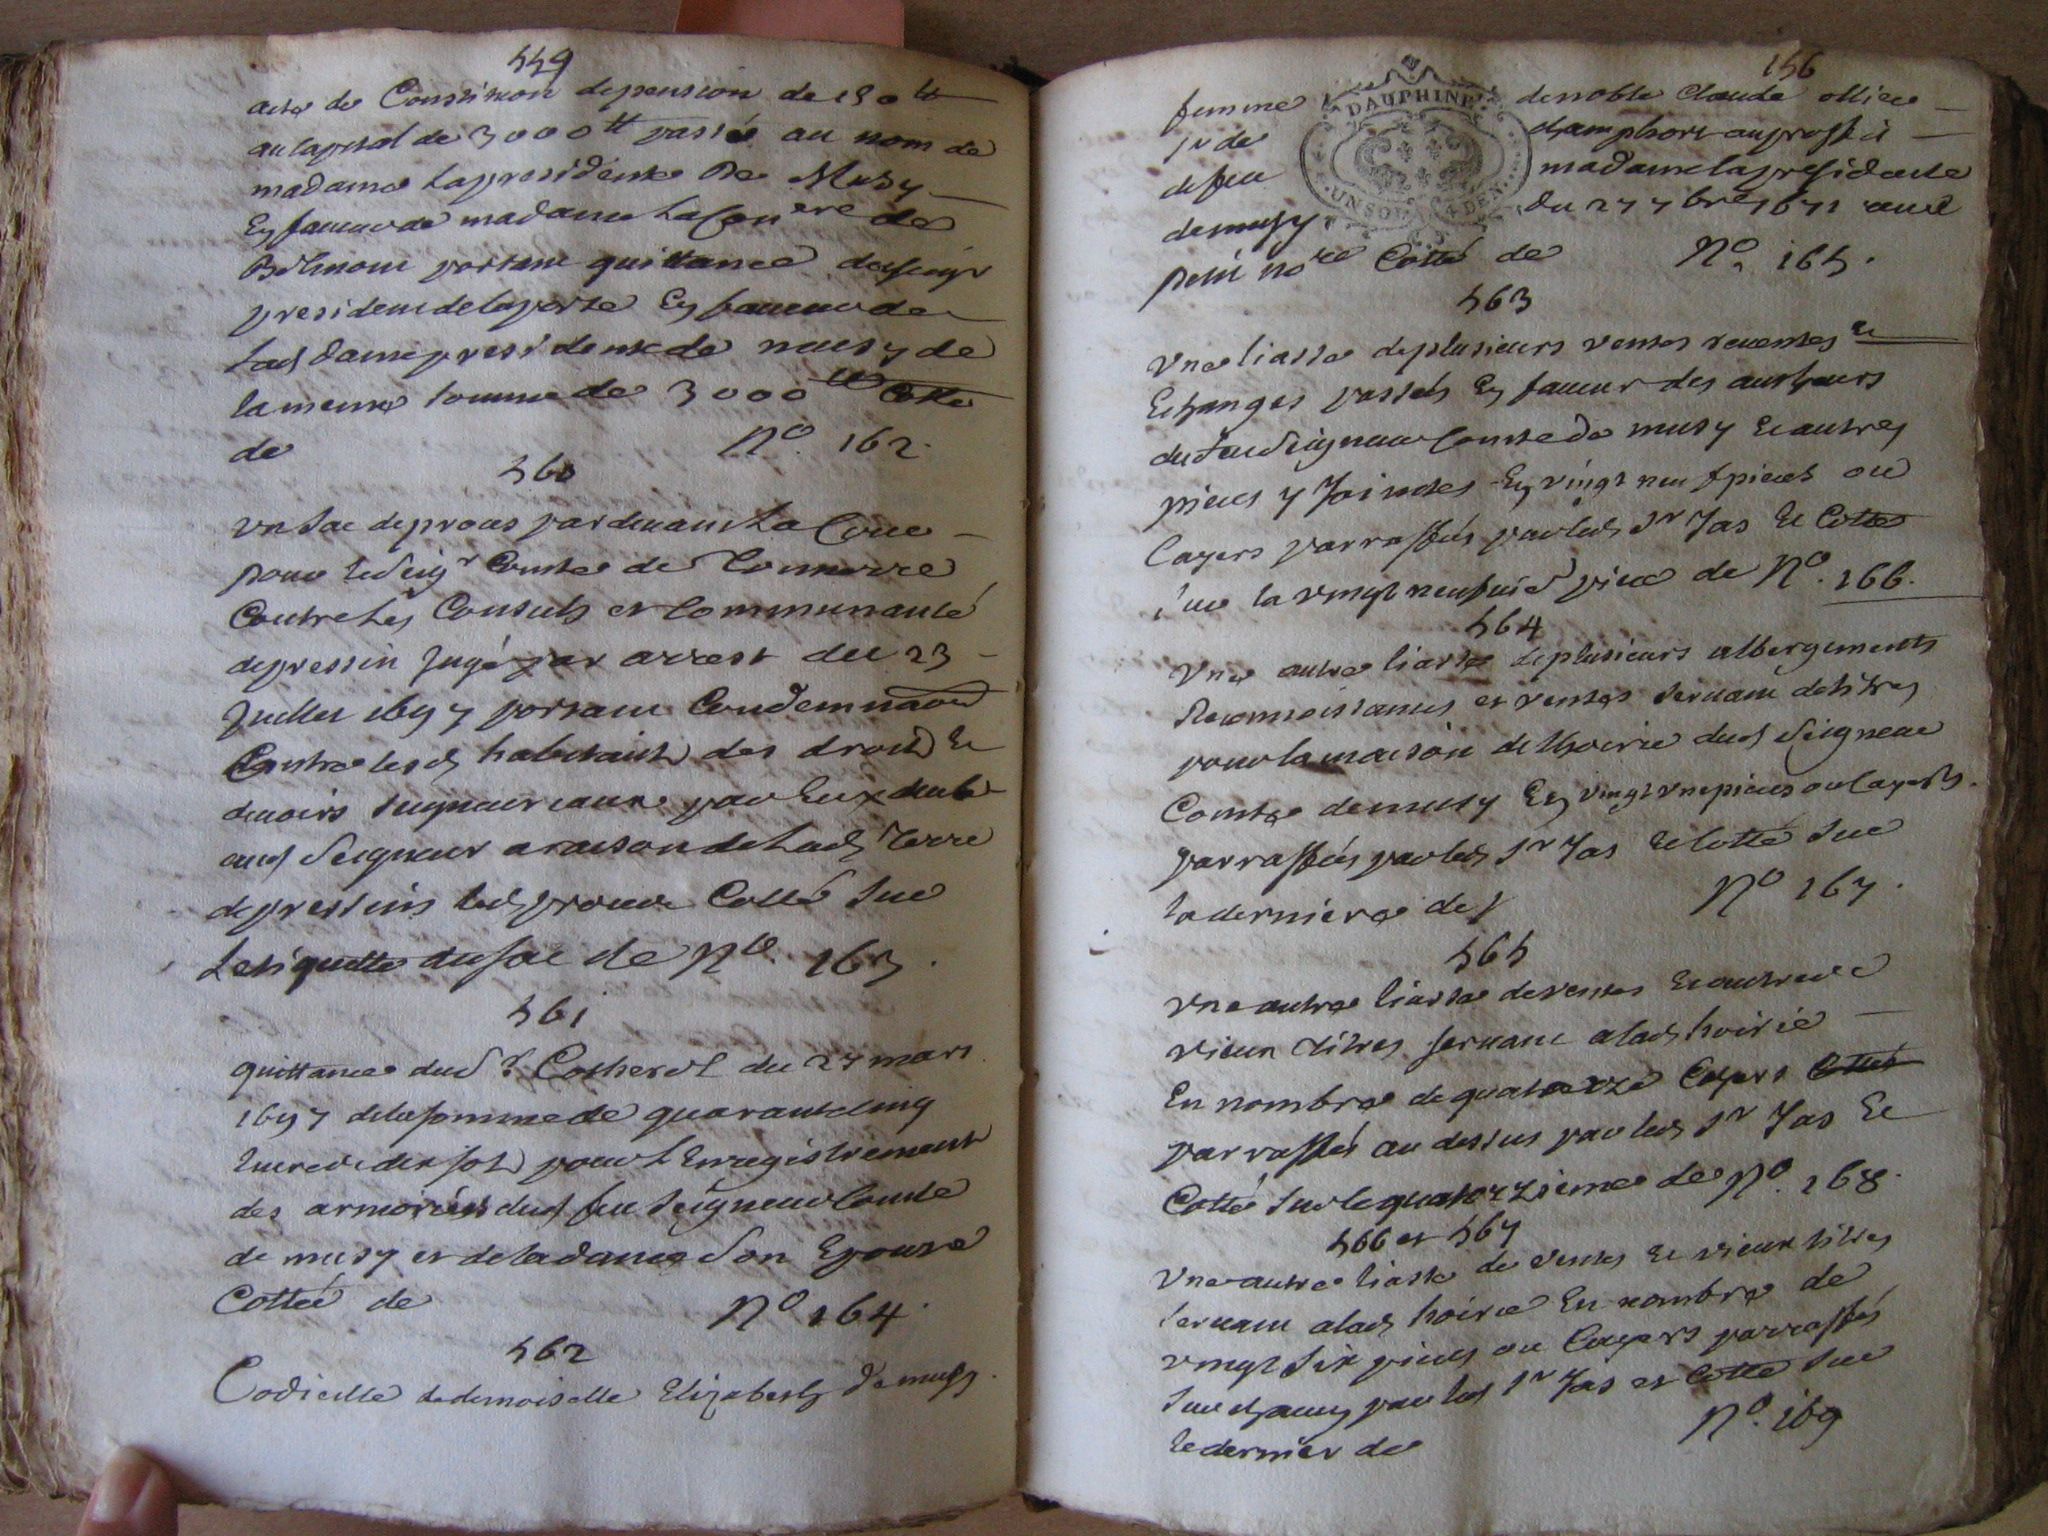 559
acte de Constition de pension de 150 tt
au capital de 3000 tt passé au nom de
madame La presidente De Musy
En faueur de madame La Con ere de
Belmont portant quittance dud seigr
president de la porte En faueur de
Lad dame presidente de musy de
la meme somme de 3000 tt Cotte
de No. 162.
560
Vn sac de proces par deuant La Cour
pour led seigr Comte de Tonnerre
Contre Les Consuls et Communauté
de pressin Jugé par arrest du 23
Juillet 1697 portant Condemnaon
Contre lesd habitants des droits Et
deuoirs seigneuriaux par Eux deub
aud Seigneur a raison de Lad Terre
de pressins led proces Cotté sur
Letiquette du sac de No. 163.
561
quittance dud Sr Cotherel du 27 mars
1697 de la somme de quarante Cinq
Liures dix sols pour L Enregistrement
des armoiries dud feu seigneur Comte
de musy et de la dame son Epouse
Cottée de No 164.
562
Codicille de demoiselle Elizabeth de musy
156
DAUPHINÉ
UN SOL 4 DEN.
femme de noble Claude ollier
Sr de au proffit
de feu madame la presidente
de musy du 27 7bre 1671 receu
petit no re Cotté de No. 165.
563
Vne liasse de plusieurs ventes reuentes et
Echanges passés En faueur des autheurs
dud feu seigneur Comte de musy Et autres
pieces y Jointes En vingt neuf pieces ou
Cayers parraffés par led Sr Jas Et Cotté
sur la vingt neufuie piece de No. 166.
564
Vne autre liasse de plusieurs albergements
Reconnoissances et ventes seruant de titres
pour la maison de L hoirie dud Seigneur
Comte de musy En vingt vne pieces ou Cayers
parraffés par led Sr Jas Et Cotté sur
la derniere de No 167.
565
Vne autre liasse de ventes Et autres
vieux titres seruant a lad hoirie
En nombre de quatorze Cayers Cottés
parraffés au dessus par led Sr Jas Et
Cotté sur le quatorzieme de No. 168.
566 et 567
Vne autre liasse de ventes Et vieux titres
seruant a lad hoirie En nombre de
vingt six pieces ou Cayers parraffés
sur chacun par led Sr Jas et Cotté sur
le dernier de No. 169